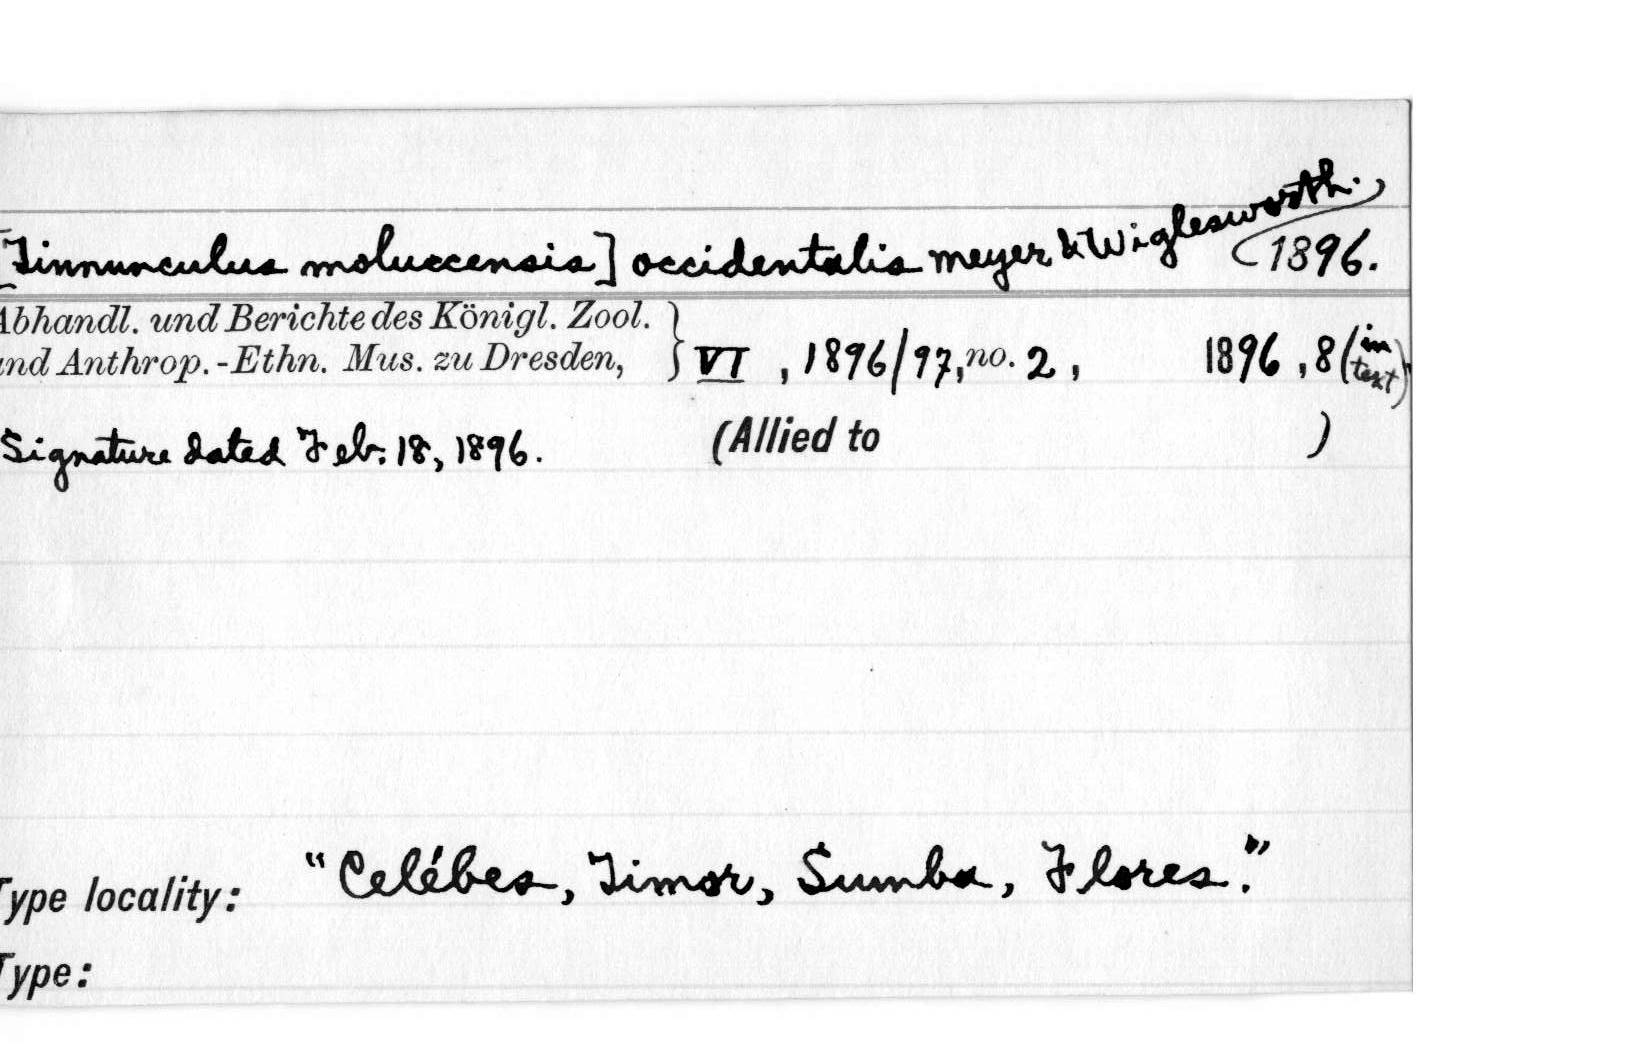 [Tinnunculus moluccensis] occidentalis Meyer & Wiglesworth.
1896.
Abhandl. und Berichte des Königl. Zool.
und Anthrop.-Ethn. Mus. zu Dresden, } VI, 1896/97, no. 2, 1896, 8 (in text)
Signature dated Feb. 18, 1896. (Allied to )
Type locality: "Celébes, Timor, Sumba, Flores."
Type: